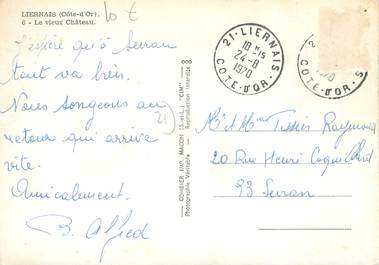 LIERNAIS (Côte-d'Or).
6 - Le vieux Château.
J'espère qu'à Sevran
tout va bien.
Nous songeons au
retour qui arrive
vite.
Amicalement.
B. Alfred
COMBIER IMP. MACON (S.-et-L.) "CIM"
Photographie Véritable - Reproduction Interdite
21 - LIERNAIS
18 H15
24-8
1970
COTE-d'OR
1970
COTE-d'OR
Mr et Mme Raymond
20 Rue Henri
93 Sevran